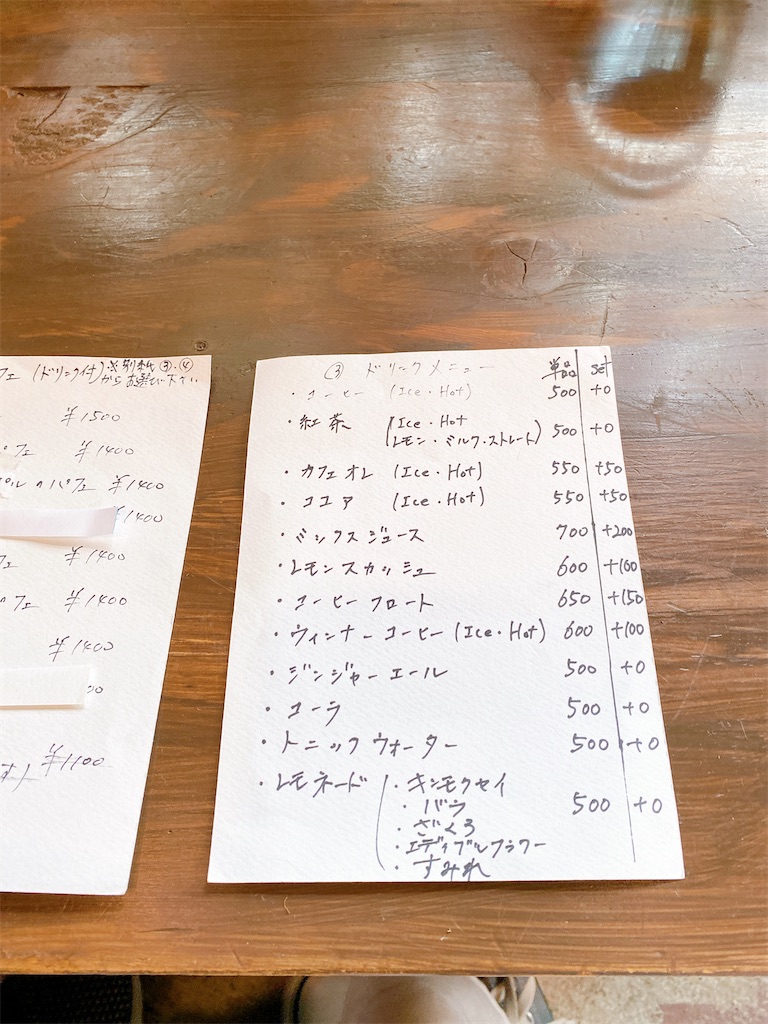 フェ (ドリンク付) ※別紙③・④
からお選び下さい
¥1500
フェ ¥1400
のパフェ ¥1400
¥1400
フェ ¥1400
フェ ¥1400
¥1400
¥1100
③ ドリンクメニュー 単品 set
・コーヒー (Ice・Hot) 500 +0
・紅茶 (Ice・Hot
レモン・ミルク・ストレート) 500 +0
・カフェオレ (Ice・Hot) 550 +50
・ココア (Ice・Hot) 550 +50
・ミックスジュース 700 +200
・レモンスカッシュ 600 +100
・コーヒーフロート 650 +150
・ウィンナーコーヒー (Ice・Hot) 600 +100
・ジンジャーエール 500 +0
・コーラ 500 +0
・トニックウォーター 500 +0
・レモネード (・キンモクセイ
・バラ 500 +0
・ざくろ
・エディブルフラワー
・すみれ